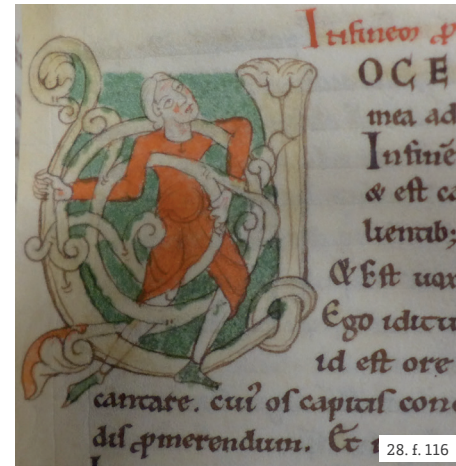 Infineo⁊ ꝓ
OCE
mea ad
Infinē
& est ca
lientib;
Et Est uox
Ego
id est ore
cantare. cui' os capitis con
dis ꝓmerendum. Et
28. f. 116